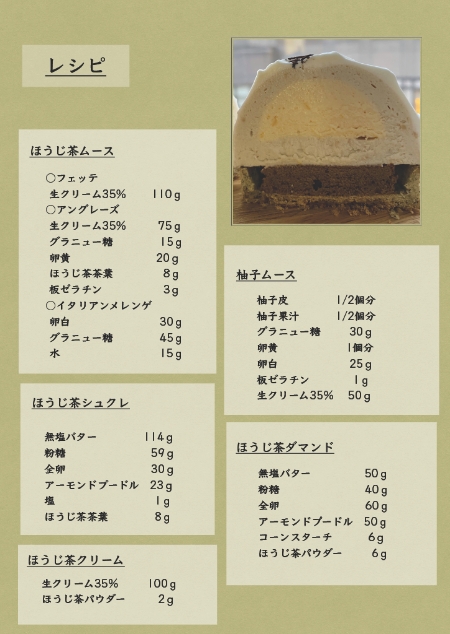 レシピ
ほうじ茶ムース
○フェッテ
生クリーム35% 110g
○アングレーズ
生クリーム35% 75g
グラニュー糖 15g
卵黄 20g
ほうじ茶茶葉 8g
板ゼラチン 3g
○イタリアンメレンゲ
卵白 30g
グラニュー糖 45g
水 15g
ほうじ茶シュクレ
無塩バター 114g
粉糖 59g
全卵 30g
アーモンドプードル 23g
塩 1g
ほうじ茶茶葉 8g
ほうじ茶クリーム
生クリーム35% 100g
ほうじ茶パウダー 2g
柚子ムース
柚子皮 1/2個分
柚子果汁 1/2個分
グラニュー糖 30g
卵黄 1個分
卵白 25g
板ゼラチン 1g
生クリーム35% 50g
ほうじ茶ダマンド
無塩バター 50g
粉糖 40g
全卵 60g
アーモンドプードル 50g
コーンスターチ 6g
ほうじ茶パウダー 6g